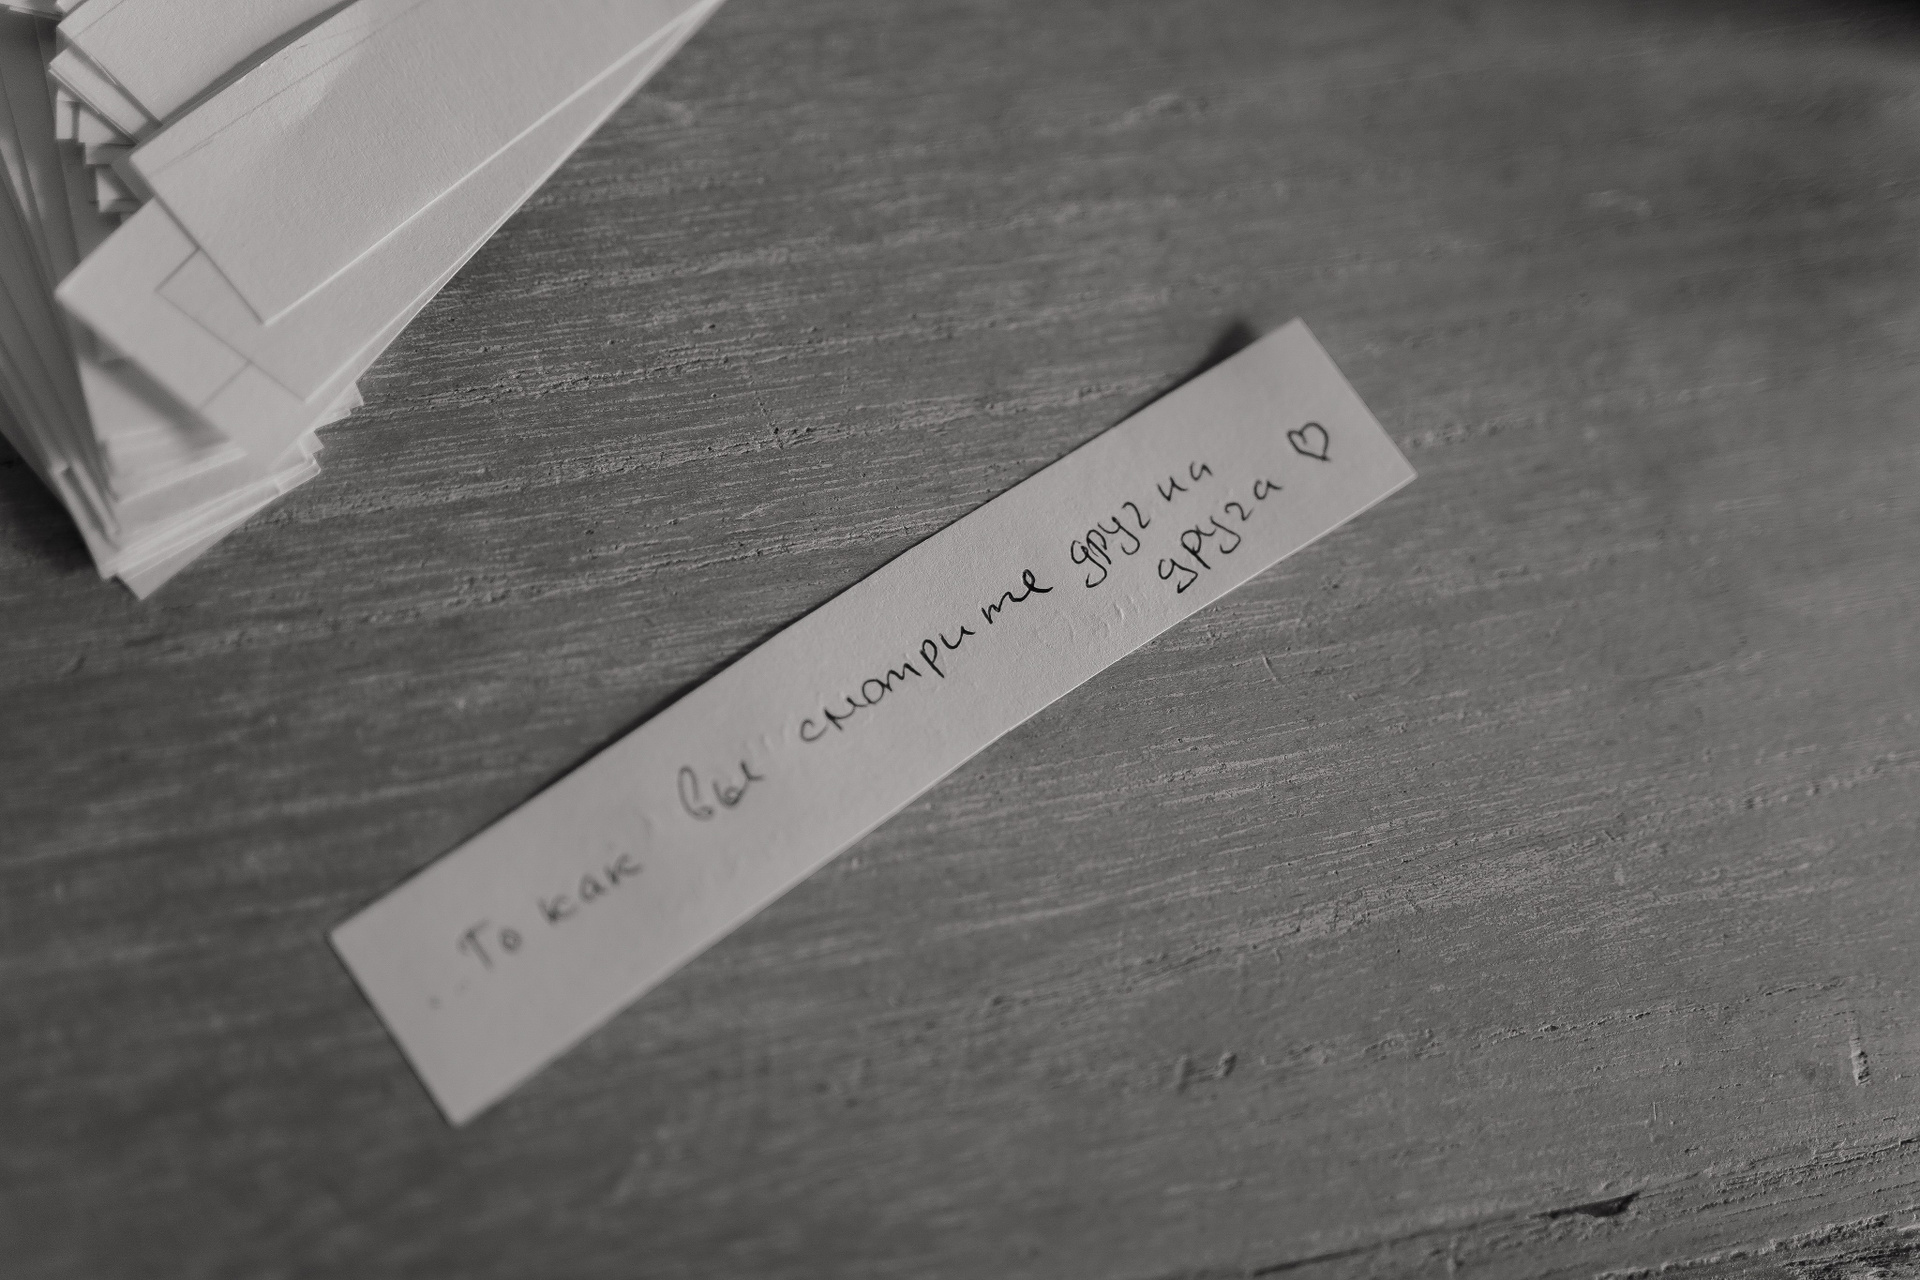 ...То как вы смотрите друг на
друга ♡